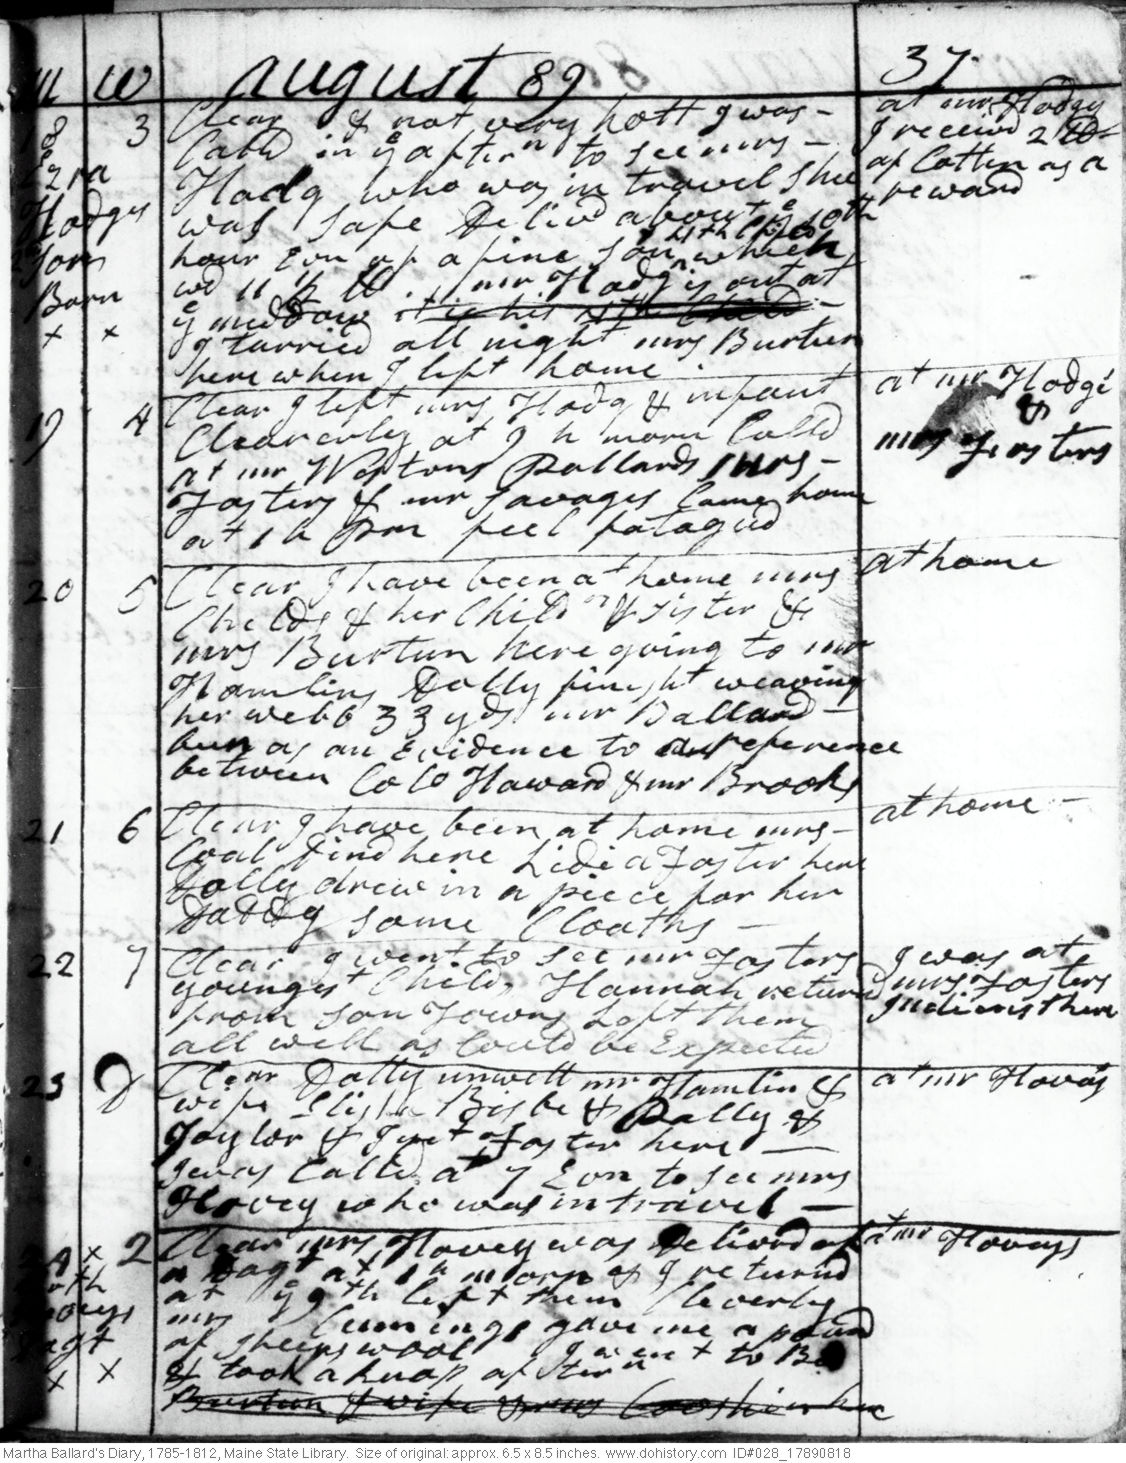 M W august 89 37
18 3 Clear & not very hott I was -
Calld in ye aftern to see mrs -
Hodg who was in travel Shee
was safe Delivd about ye 10th
hour Evn of a fine son which
wd 11 lb. mr Hodg is out at
ye meddow it is his 4th Child -
I tarried all night mrs Burtun
here when I left home.
Ezra
Hodges
Son
Born
x x
at mr Hodgs
I receivd 2 lb
of Cotten as a
reward
19 4 Clear I left mrs Hodg & infant
Cleaverly at 9 h morn Calld
at mr Westons Pollards mrs -
Fosters & mr Savages Came home
at 1 h pm feel fatagud
at mr Hodgs
&
mrs Fosters
20 5 Clear I have been at home mrs
Childs & her Child & sister &
mrs Burtun here going to mr
Hamlins Dolly finisht weaving
her webb 33 yds mr Ballard -
been as an Evidence to a reference
between Colo Howard & mr Brooks
at home
21 6 Clear I have been at home mrs -
Coal Find here Lidia Foster here
Dolly drew in a piece for her
Daddy some Cloaths -
at home -
22 7 Clear I went to see mr Fosters
youngest Child, Hannah returnd
from son Towns Left them
all well as Could be Expected
I was at
mrs Fosters
Indiens there
23 Clear Dolly unwell mr Hamlin &
wife Elisha Bisbe & Dally &
Taylor & Foster here -
I was Calld at 7 Evn to see mrs
Hovey who was in travel -
at mr Hovays
24 x 2 Clear mrs Hovey was Delivrd of
a Dagt at 1 h morn & I returnd
at ye 9th left them Cleverly
mrs Cummings gave me a pound
of sheeps wool I went to Bed
& took a knap aftern
Burtun & wife & mrs here
Hoveys
Dagt
x x
at mr Hoveys
Martha Ballard's Diary, 1785-1812, Maine State Library. Size of original: approx. 6.5 x 8.5 inches. www.dohistory.com ID#028_17890818